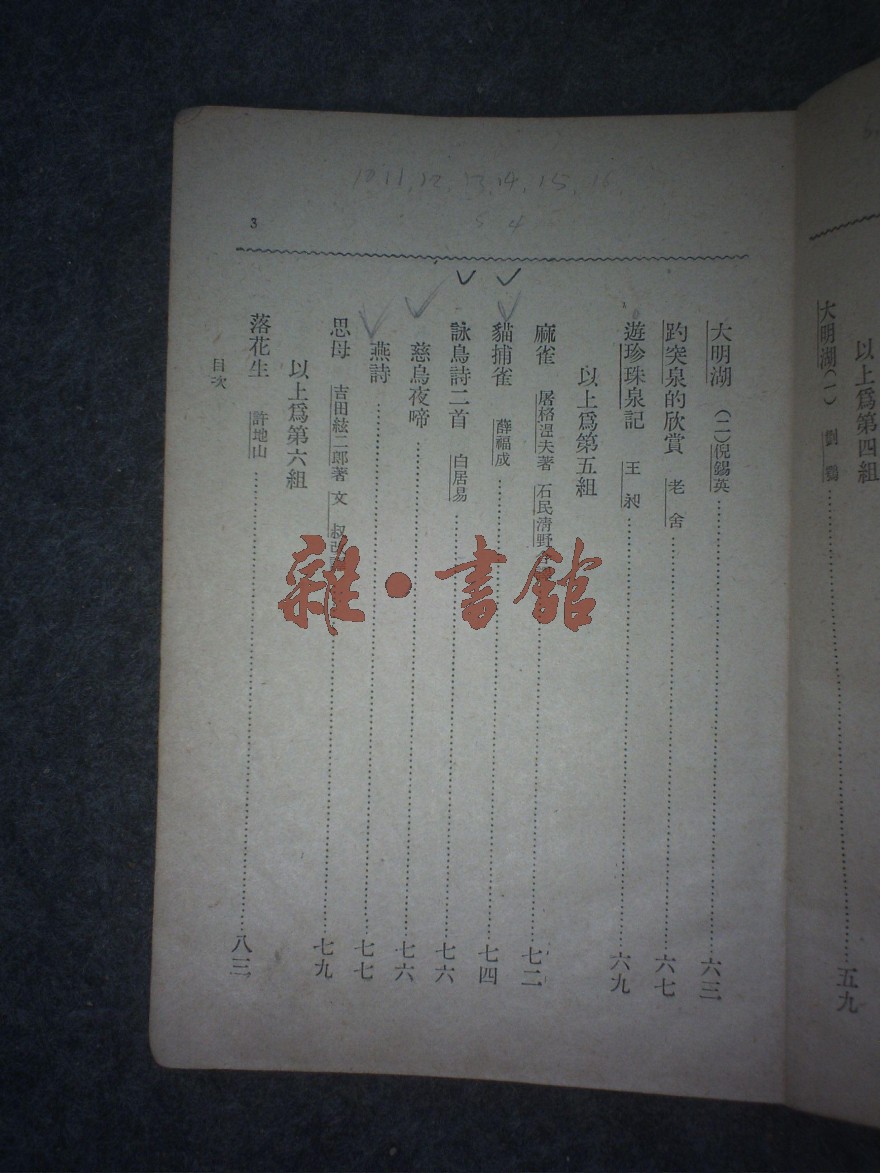 以上爲第四組
大明湖(一) 劉鶚 五九
10, 11, 12, 13, 14, 15, 16
5 4
3
大明湖 (二)倪錫英 六三
趵突泉的欣賞 老舍 六七
遊珍珠泉記 王昶 六九
以上爲第五組
麻雀 屠格涅夫著 石民清野 七二
貓捕雀 薛福成 七四
詠鳥詩二首 白居易 七六
慈烏夜啼 七六
燕詩 七七
思母 吉田絃二郎著 文叔 七九
以上爲第六組
落花生 許地山 八三
目次
雜·書館